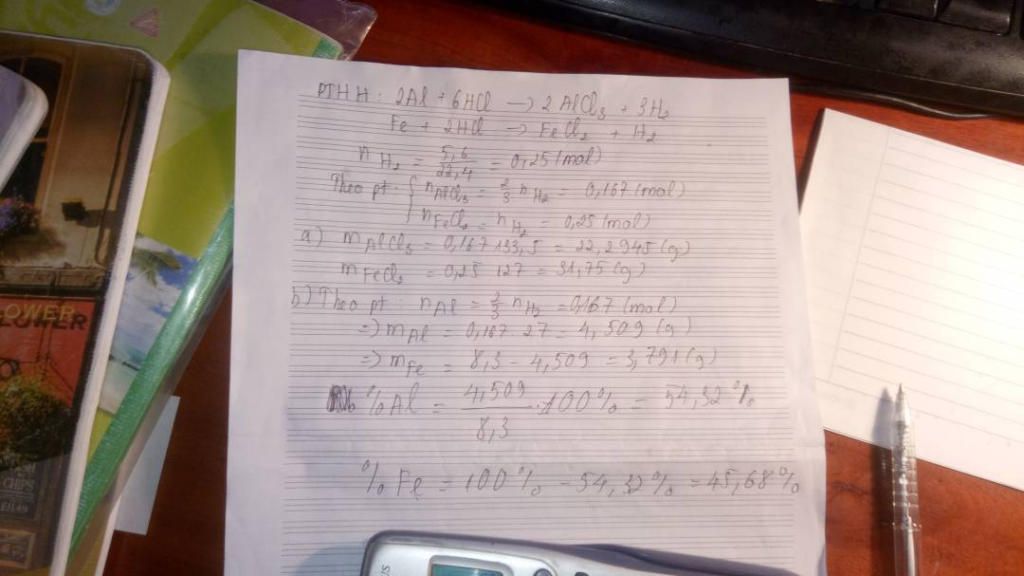 PTHH: 2Al + 6HCl → 2AlCl3 + 3H2
Fe + 2HCl → FeCl2 + H2
nH2 = 5,6/22,4 = 0,25 (mol)
Theo pt: { nAlCl3 = 2/3 nH2 = 0,167 (mol)
nFeCl2 = nH2 = 0,25 (mol)
a) mAlCl3 = 0,167.133,5 = 22,2945 (g)
mFeCl2 = 0,25.127 = 31,75 (g)
b) Theo pt: nAl = 2/3 nH2 = 0,167 (mol)
=> mAl = 0,167.27 = 4,509 (g)
=> mFe = 8,3 - 4,509 = 3,791 (g)
%Al = 4,509/8,3 .100% = 54,32%
%Fe = 100% - 54,32% = 45,68%
LOWER